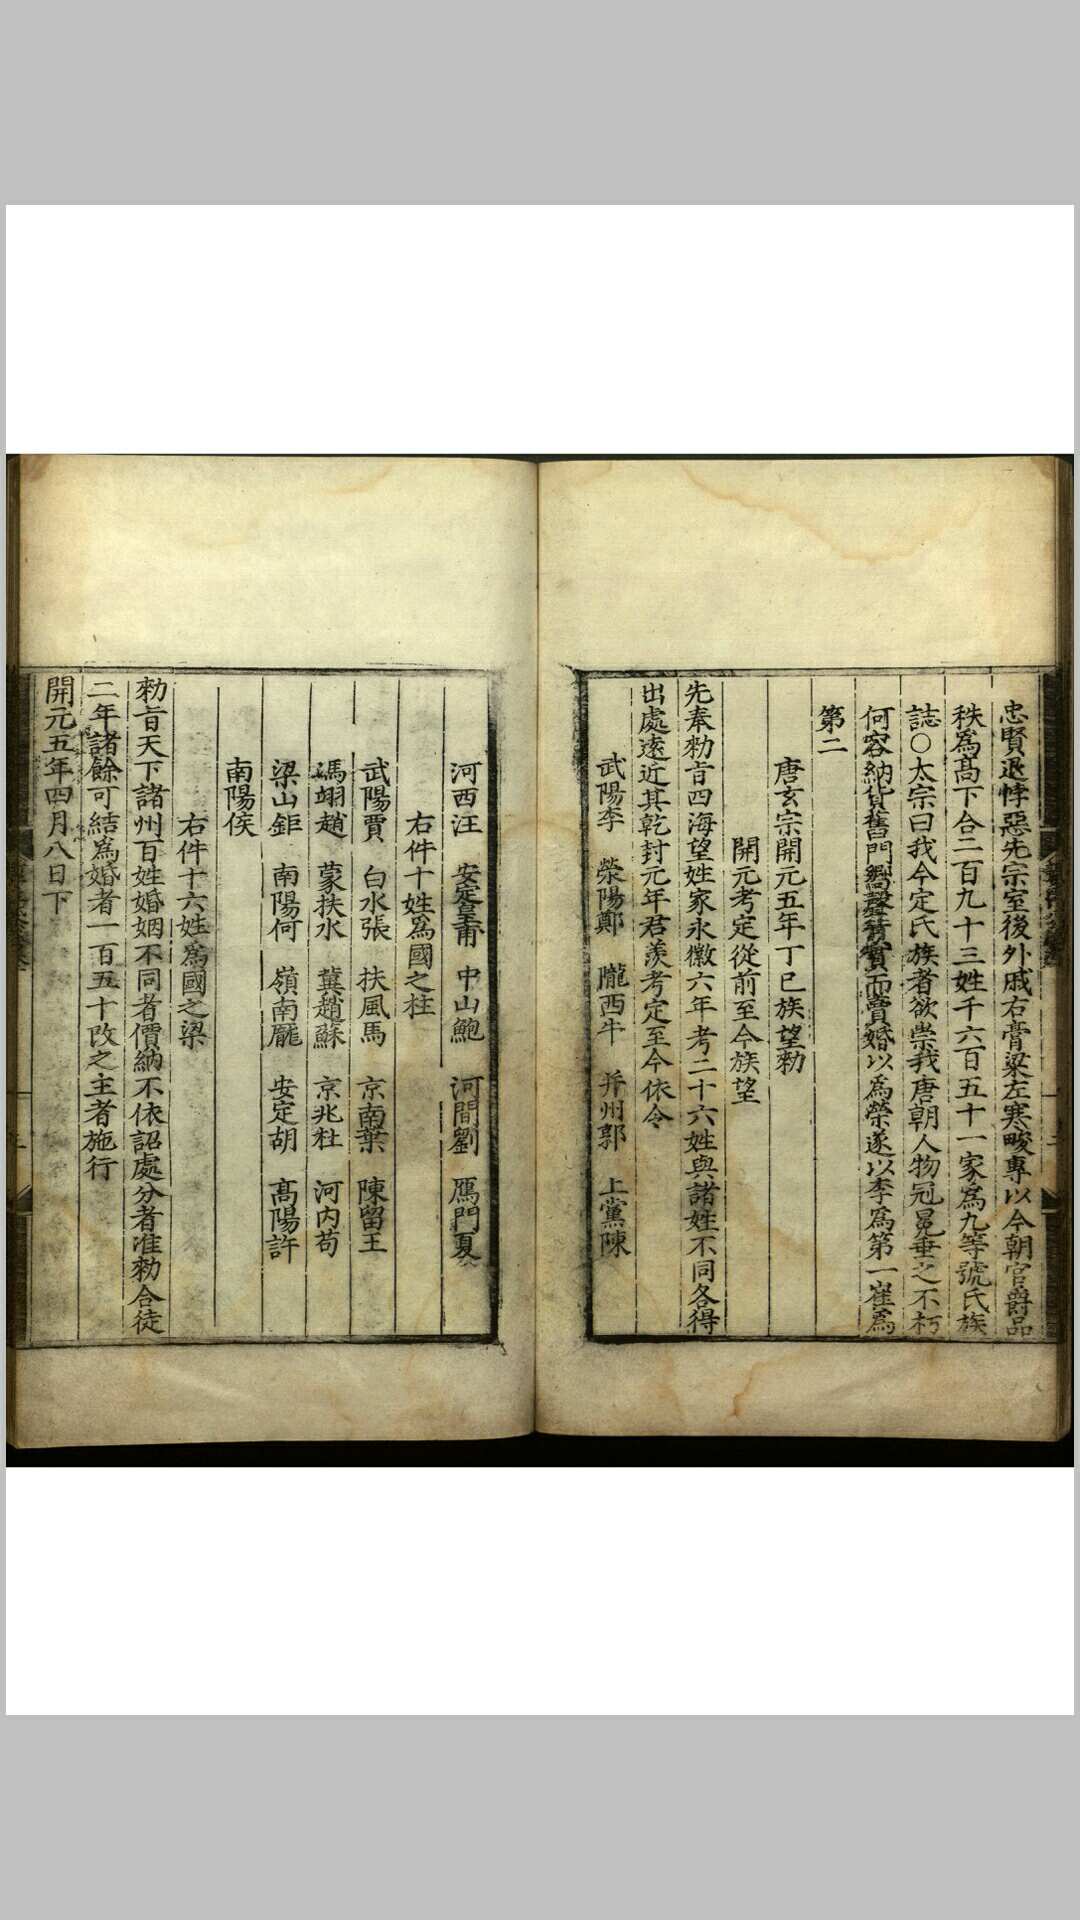 忠賢退悖惡先宗室後外戚右膏粱左寒畯專以今朝官爵品
秩爲高下合二百九十三姓千六百五十一家爲九等號氏族
誌○太宗曰我今定氏族者欲崇我唐朝人物冠冕垂之不朽
何容納貨舊門嚮聲背實而賣婚以爲榮遂以李爲第一崔爲
第二
唐玄宗開元五年丁巳族望勑
開元考定從前至今族望
先奉勑旨四海望姓家永徽六年考二十六姓與諸姓不同各得
出處遠近其乾封元年君羨考定至今依令
武陽李 滎陽鄭 隴西牛 并州郭 上黨陳
河西汪 安定皇甫 中山鮑 河間劉 鴈門夏
右件十姓爲國之柱
武陽賈 白水張 扶風馬 京南葉 陳留王
馮翊趙 蒙扶水 冀趙蘇 京兆杜 河內苟
梁山鉅 南陽何 嶺南龐 安定胡 高陽許
南陽侯
右件十六姓爲國之梁
勑旨天下諸州百姓婚姻不同者價納不依詔處分者准勑合徒
二年諸餘可結爲婚者一百五十改之主者施行
開元五年四月八日下